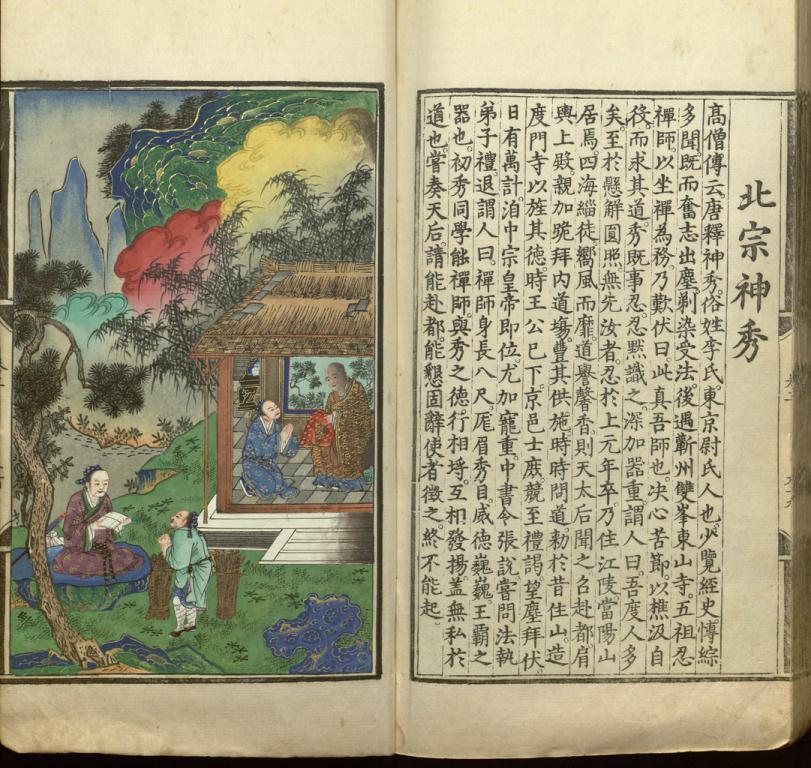 北宗神秀
高僧傳云。唐釋神秀。俗姓李氏。東京尉氏人也。少覽經史。慱綜
多聞。既而奮志出塵。剃染受法。後遇蘄州雙峯東山寺。五祖忍
禪師。以坐禪為務。乃歎伏曰。此真吾師也。决心苦節。以樵汲自
役。而求其道。秀既事忍。忍默識之。深加器重。謂人曰。吾度人多
矣。至於懸解圓照。無先汝者。忍於上元年卒。乃住江陵當陽山
居焉。四海緇徒。嚮風而靡。道譽馨香。則天太后聞之。召赴都。肩
輿上殿。親加跪拜。內道塲。豐其供施。時時問道。勅於昔住山。造
度門寺。以旌其德。時王公已下。京邑士庶。競至禮謁。望塵拜伏。
日有萬計。洎中宗皇帝即位。尤加寵重。中書令張說嘗問法。執
弟子禮。退謂人曰。禪師身長八尺。厖眉秀目。威德巍巍。王霸之
器也。初秀同學能禪師。與秀之德行相埒。互相發揚。蓋無私於
道也。嘗奏天后。請能赴都。能懇固辭。使者徵之。終不能起。